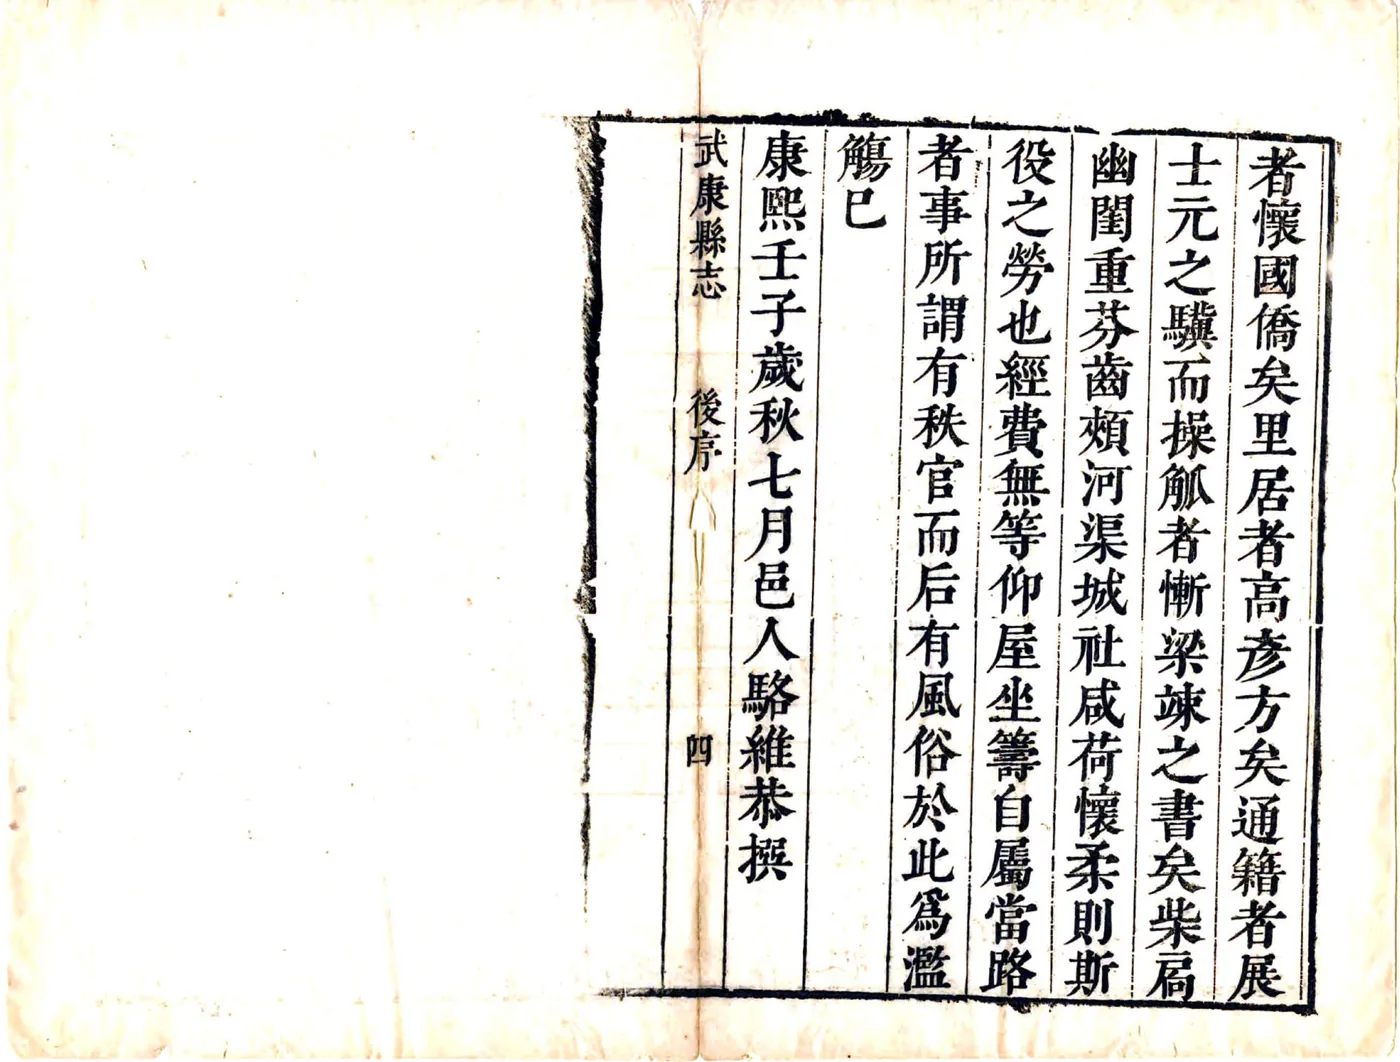 者懷國僑矣里居者高彥方矣通籍者展
士元之驥而操觚者慚梁竦之書矣柴扄
幽閨重芬齒頰河渠城社咸荷懷柔則斯
役之勞也經費無等仰屋坐籌自屬當路
者事所謂有秩官而后有風俗於此爲濫
觴已
康熙壬子歲秋七月邑人駱維恭撰
武康縣志 後序 四